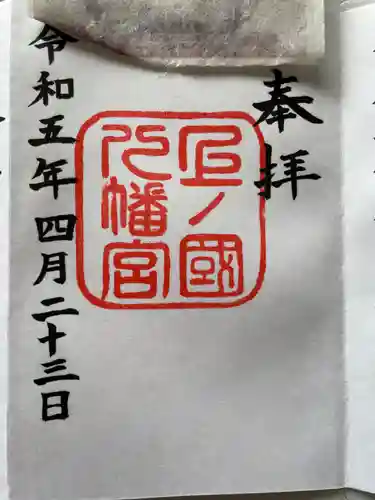 奉拝
上ノ國
八幡宮
令和五年四月二十三日